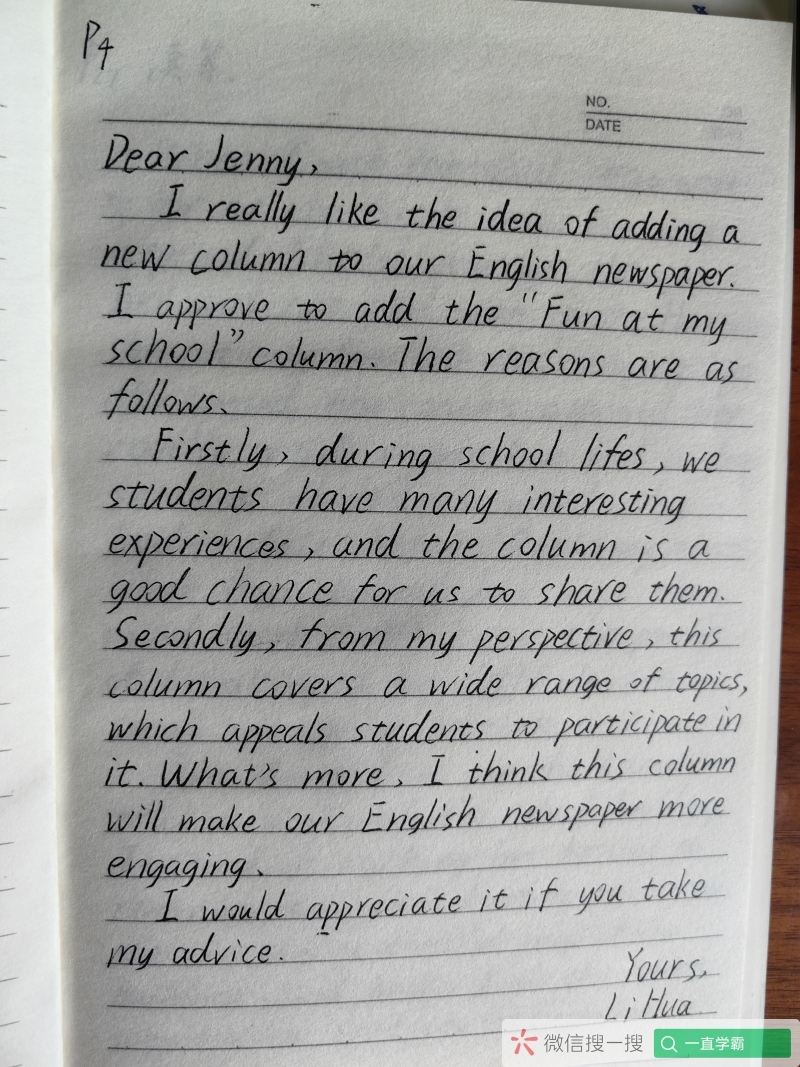 P4
NO.
DATE
Dear Jenny,
I really like the idea of adding a
new column to our English newspaper.
I approve to add the "Fun at my
school" column. The reasons are as
follows.
Firstly, during school lifes, we
students have many interesting
experiences, and the column is a
good chance for us to share them.
Secondly, from my perspective, this
column covers a wide range of topics,
which appeals students to participate in
it. What's more, I think this column
will make our English newspaper more
engaging.
I would appreciate it if you take
my advice.
Yours,
Li Hua
微信搜一搜 一直学霸